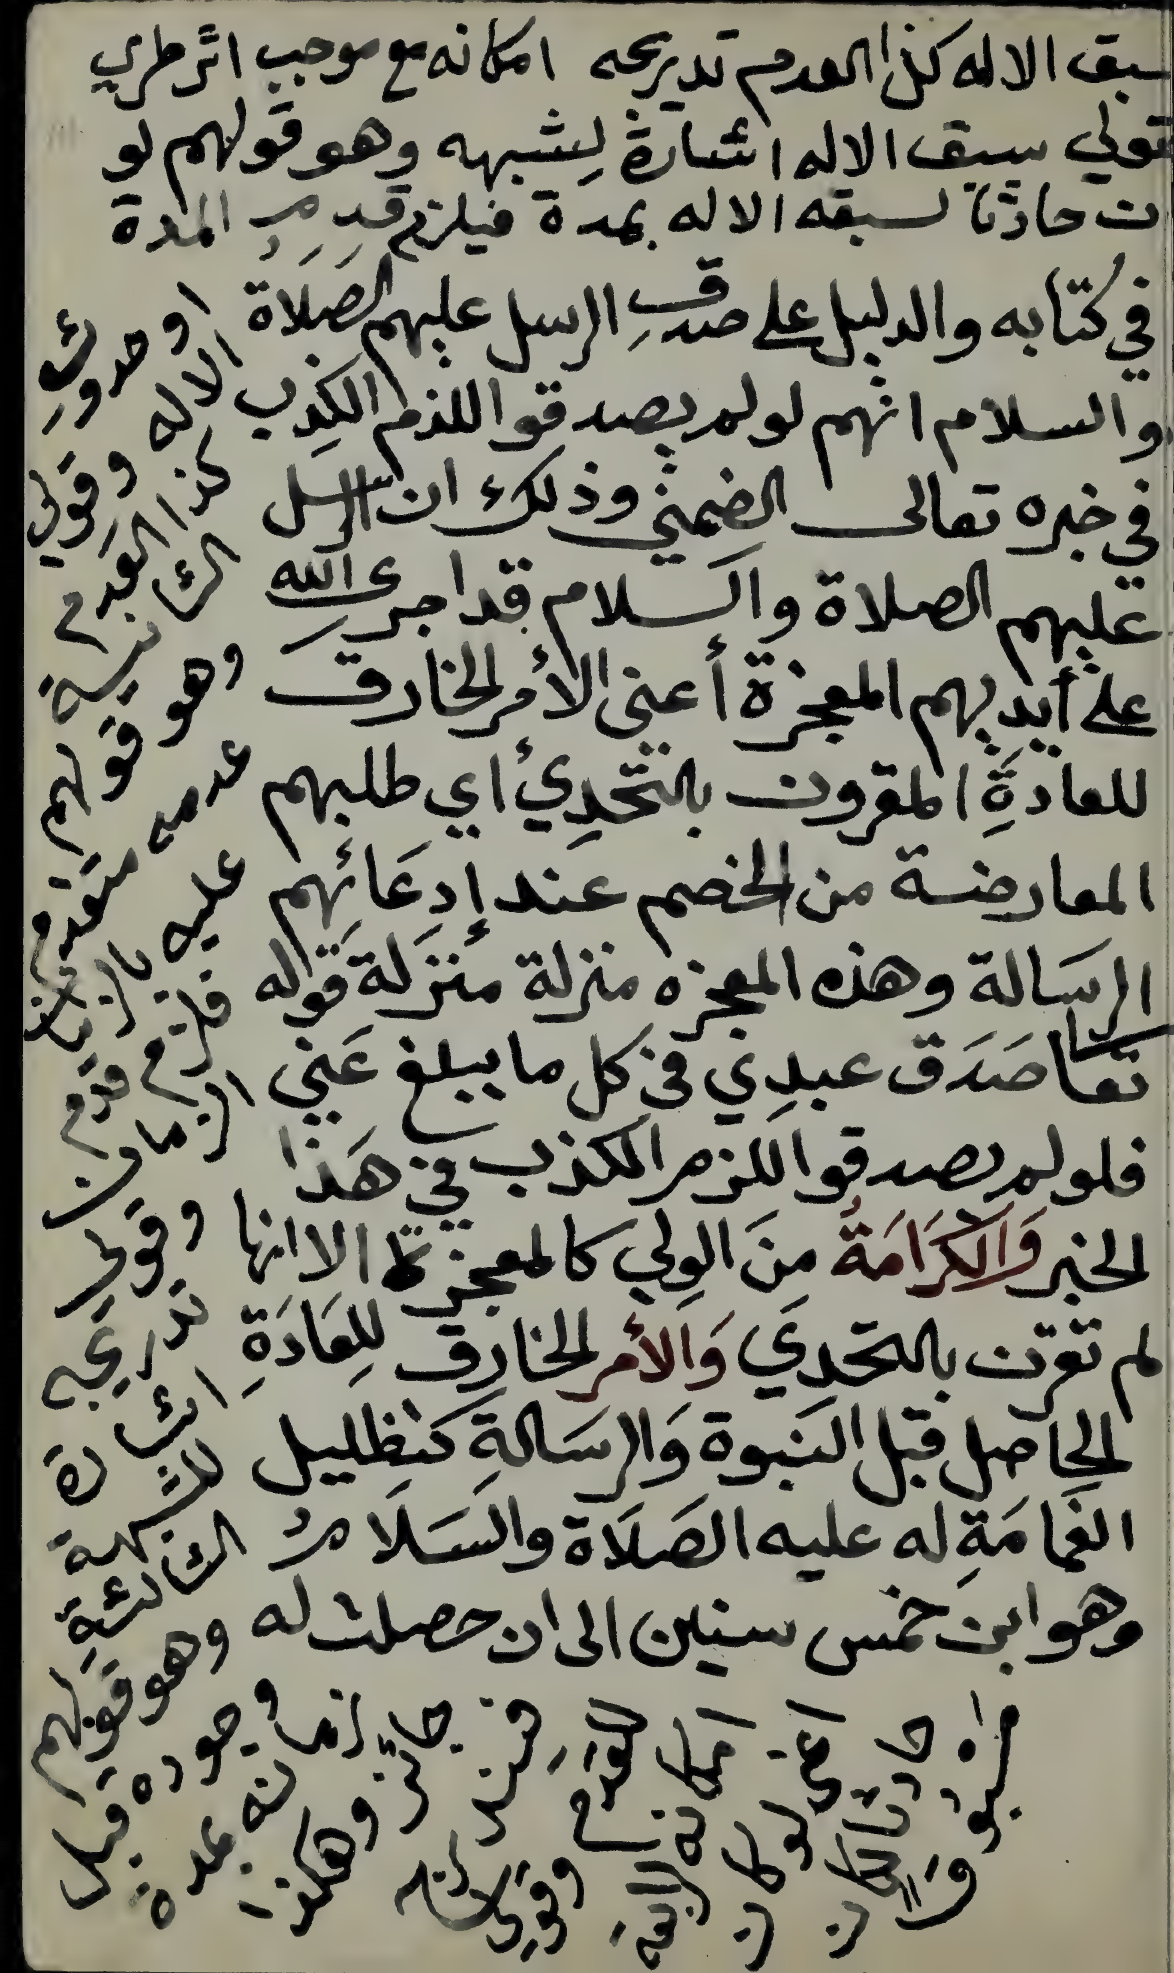 سبق الاله كذا العدم تدريجه امكانه مع موجب اثر طري
قولي سبق الاله اشارة لِشبهه وهو قولهم لو
ن حادثا لسبقه الاله بمدة فيلزم قدم المدة
في كتابه والدليل على صدقِ الرسل عليهم الصَلَاة
والسلام انهم لو لم يصدقوا للزم الكِذب
في خبره تعالى الضمني وذلك ان الرسل
عليهم الصلاة والسلام قد اجرى الله
على أيديهم المعجزة أعني الأمر الخارق
للعادَةِ المقرون بالتَّحدِي أي طلبهم
المعارضة من الخصم عند إدِعَائهم
الرسَالة وهذه المعجزه منزلة منزَلة قوله
تعا صَدَق عبدِي في كل ما يبلغ عَني
فلو لم يصدقوا للزم الكذب في هَذا
الخبر وَالكَرَامَةُ مِنَ الوِلي كالمعجزة الا انها
لم تقرن بالتحدِي وَالأمر الخارِق للِعَادَةِ
الحاصل قبل النبوة وَالرسَالةِ كَتظليل
الغَمَامَةِ له عليه الصَلَاة والسَلَام
وهو ابن خمس سنين الى ان حصلت له
او حدوث
الاله وقولي
كذا العدم
الثانية
وهو قولهم
عدمه متقدم
عليه بالزمان
فلزم قدم
الزمان
وقولي
تدريجه
اشارة
للشبهة
الثالثةِ
وهو قولهم
وجوده قبل
زمانه بمدة
جائز وهكذا